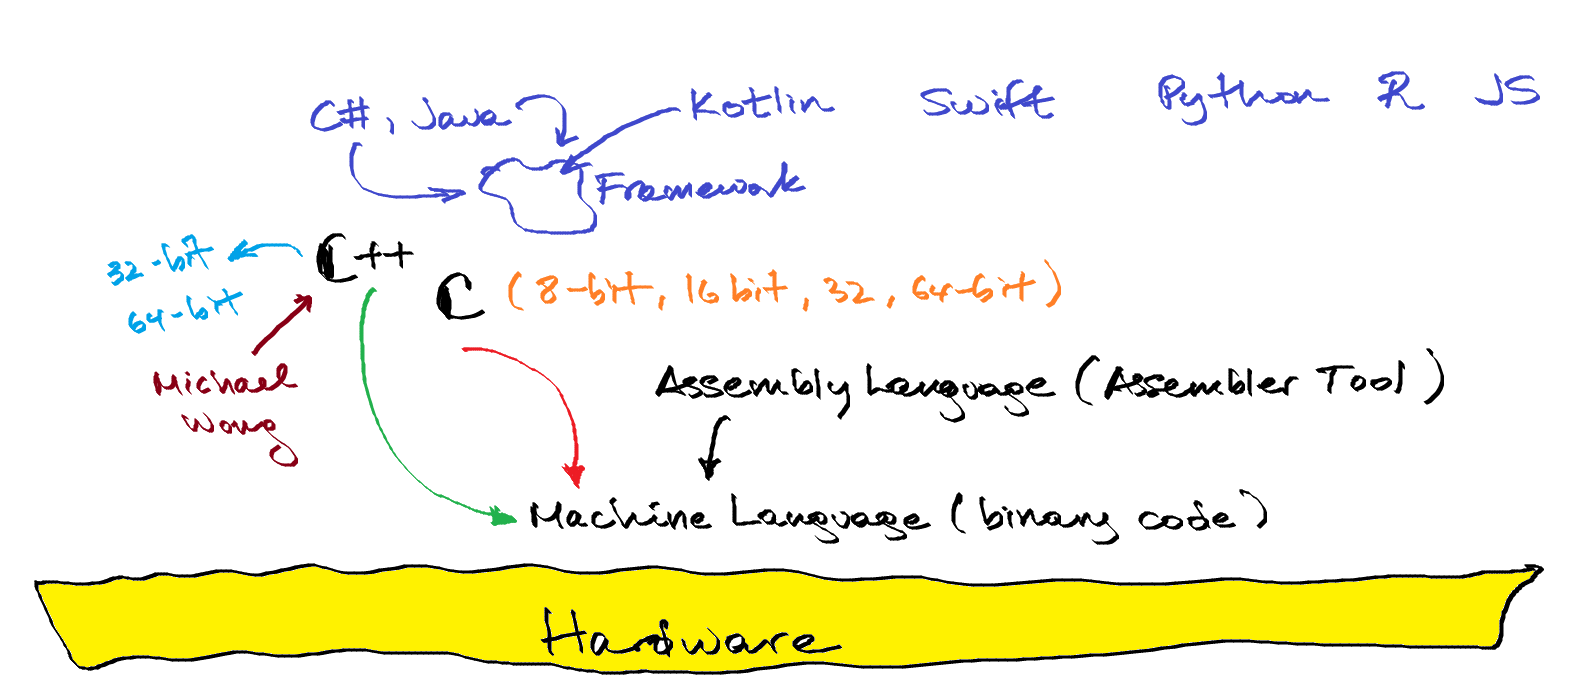 C#, Java Kotlin Swift Python R JS
Framework
32-bit C++
64-bit C (8-bit, 16 bit, 32, 64-bit)
Michael Assembly Language (Assembler Tool)
Wong
Machine Language (binary code)
Hardware